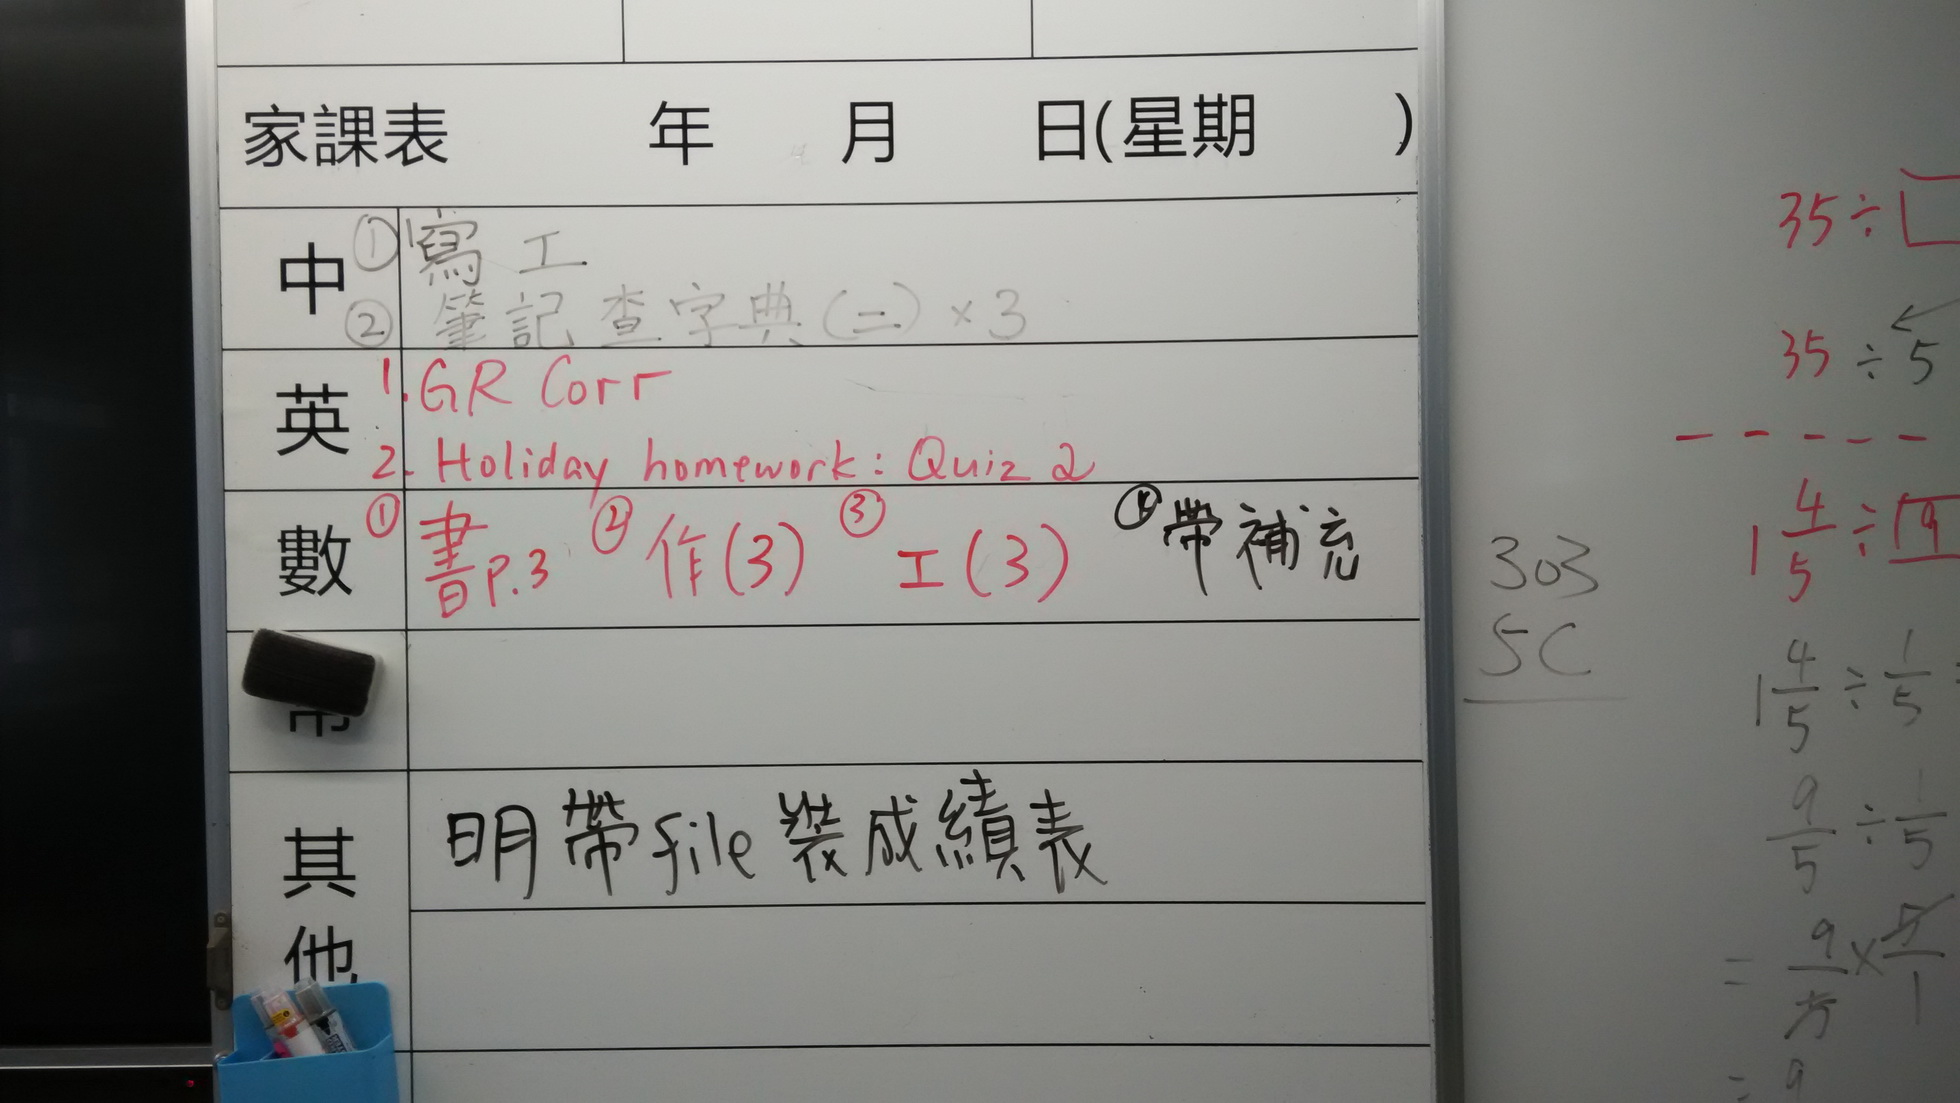 家課表 年 月 日(星期 )
中 ① 寫工
② 筆記查字典(二)×3
英 1. GR Corr
2. Holiday homework: Quiz 2
數 ① 書p.3 ② 作(3) ③ 工(3) ④ 帶補充
常
其他 明帶file裝成績表
303
5C
35÷
35÷5
1 4/5 ÷ 9
1 4/5 ÷ 1/5
9/5 ÷ 1/5
= 9/5 × 5/1
= 9